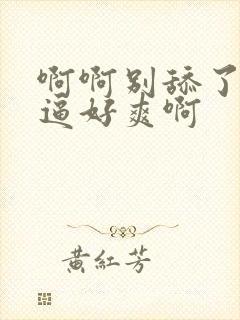 啊啊别舔了
逼好爽啊
黄紅芳